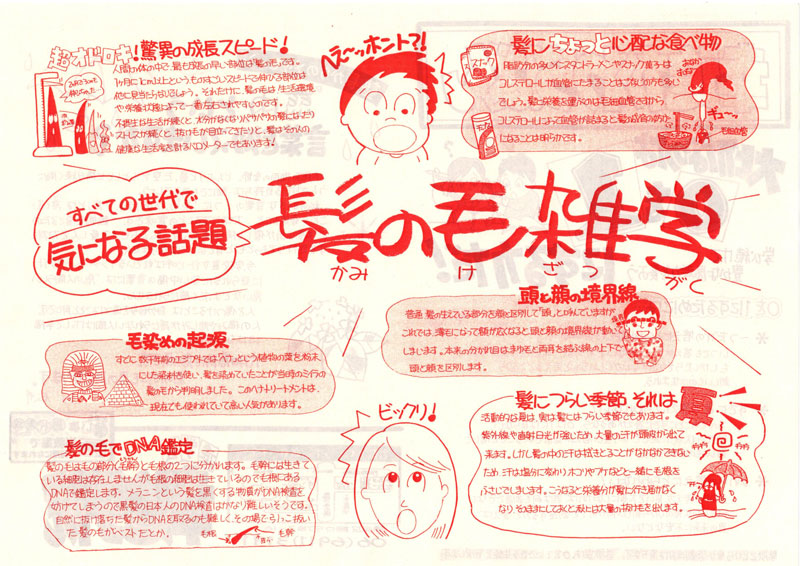 超オドロキ!驚異の成長スピード!
人間の体の中で、最も成長の早い部分は「髪の毛」です。
1ヶ月に1cm以上というものすごいスピードで伸びる部位は
他に見当たらないでしょう。それだけに、髪の毛は生活環境
や栄養状態によって一番左右されやすいのです。
不摂生な生活が続くと、水分がなくなりパサパサの髪になったり
ストレスが続くと、抜け毛が目立ってきたりと、髪はその人の
健康な生活度を計るバロメーターでもあります!
へえ〜ッホント?!
髪にちょっと心配な食べ物
スナック
脂肪分の多いインスタントラーメンやスナック菓子は
コレステロールが血管にたまることはごぞんじの方も多い
でしょう。髪に栄養を運ぶのは毛細血管ですから、
コレステロールによって血管が詰まると髪の成長のさまたげ
になることは明らかです。
ギュ〜ッ
毛細血管
すべての世代で
気になる話題
髪の毛雑学
かみ け ざつ がく
頭と顔の境界線
普通、髪の生えている部分を顔と区別して「頭」とよんでいますが
これでは、薄毛によって額が広くなると頭と顔の境界線が動いて
しまいます。本来の分かれ目はまゆ毛と両耳を結ぶ線の上下で
頭と顔を区別します。
毛染めの起源
すでに数千年前のエジプトでは「ヘナ」という植物の葉を粉末
にした染料を使い、髪を染めていたことが当時のミイラの
髪の毛から判明しました。このヘナトリートメントは、
現在でも使われていて高い人気があります。
髪につらい季節、それは夏
活動的な夏は、実は髪にはつらい季節でもあります。
紫外線や直射日光が強いため、大量の汗が頭皮から出て
来ます。しかし髪の中の汗は拭きとることがなかなかできない
ため、汗は塩分に変わりホコリやアカなどと一緒に毛根を
ふさいでしまいます。こうなると栄養分が髪に行き届かなく
なり、そのままにしておくと秋には大量の抜け毛を出します。
ビックリ!
髪の毛でDNA鑑定
髪の毛はもの部分(毛幹)と毛根の2つに分かれます。毛幹には生きて
いる細胞は存在しませんが毛根の細胞は生きているので毛根にある
DNAで鑑定します。メラニンという髪を黒くする物質がDNA検査を
妨げてしまうので黒髪の日本人のDNA検査はかなり難しいそうです。
自然に抜け落ちた髪からDNAを取るのも難しく、その場で引っこ抜い
た髪の毛がベストだとか。
毛根
毛幹